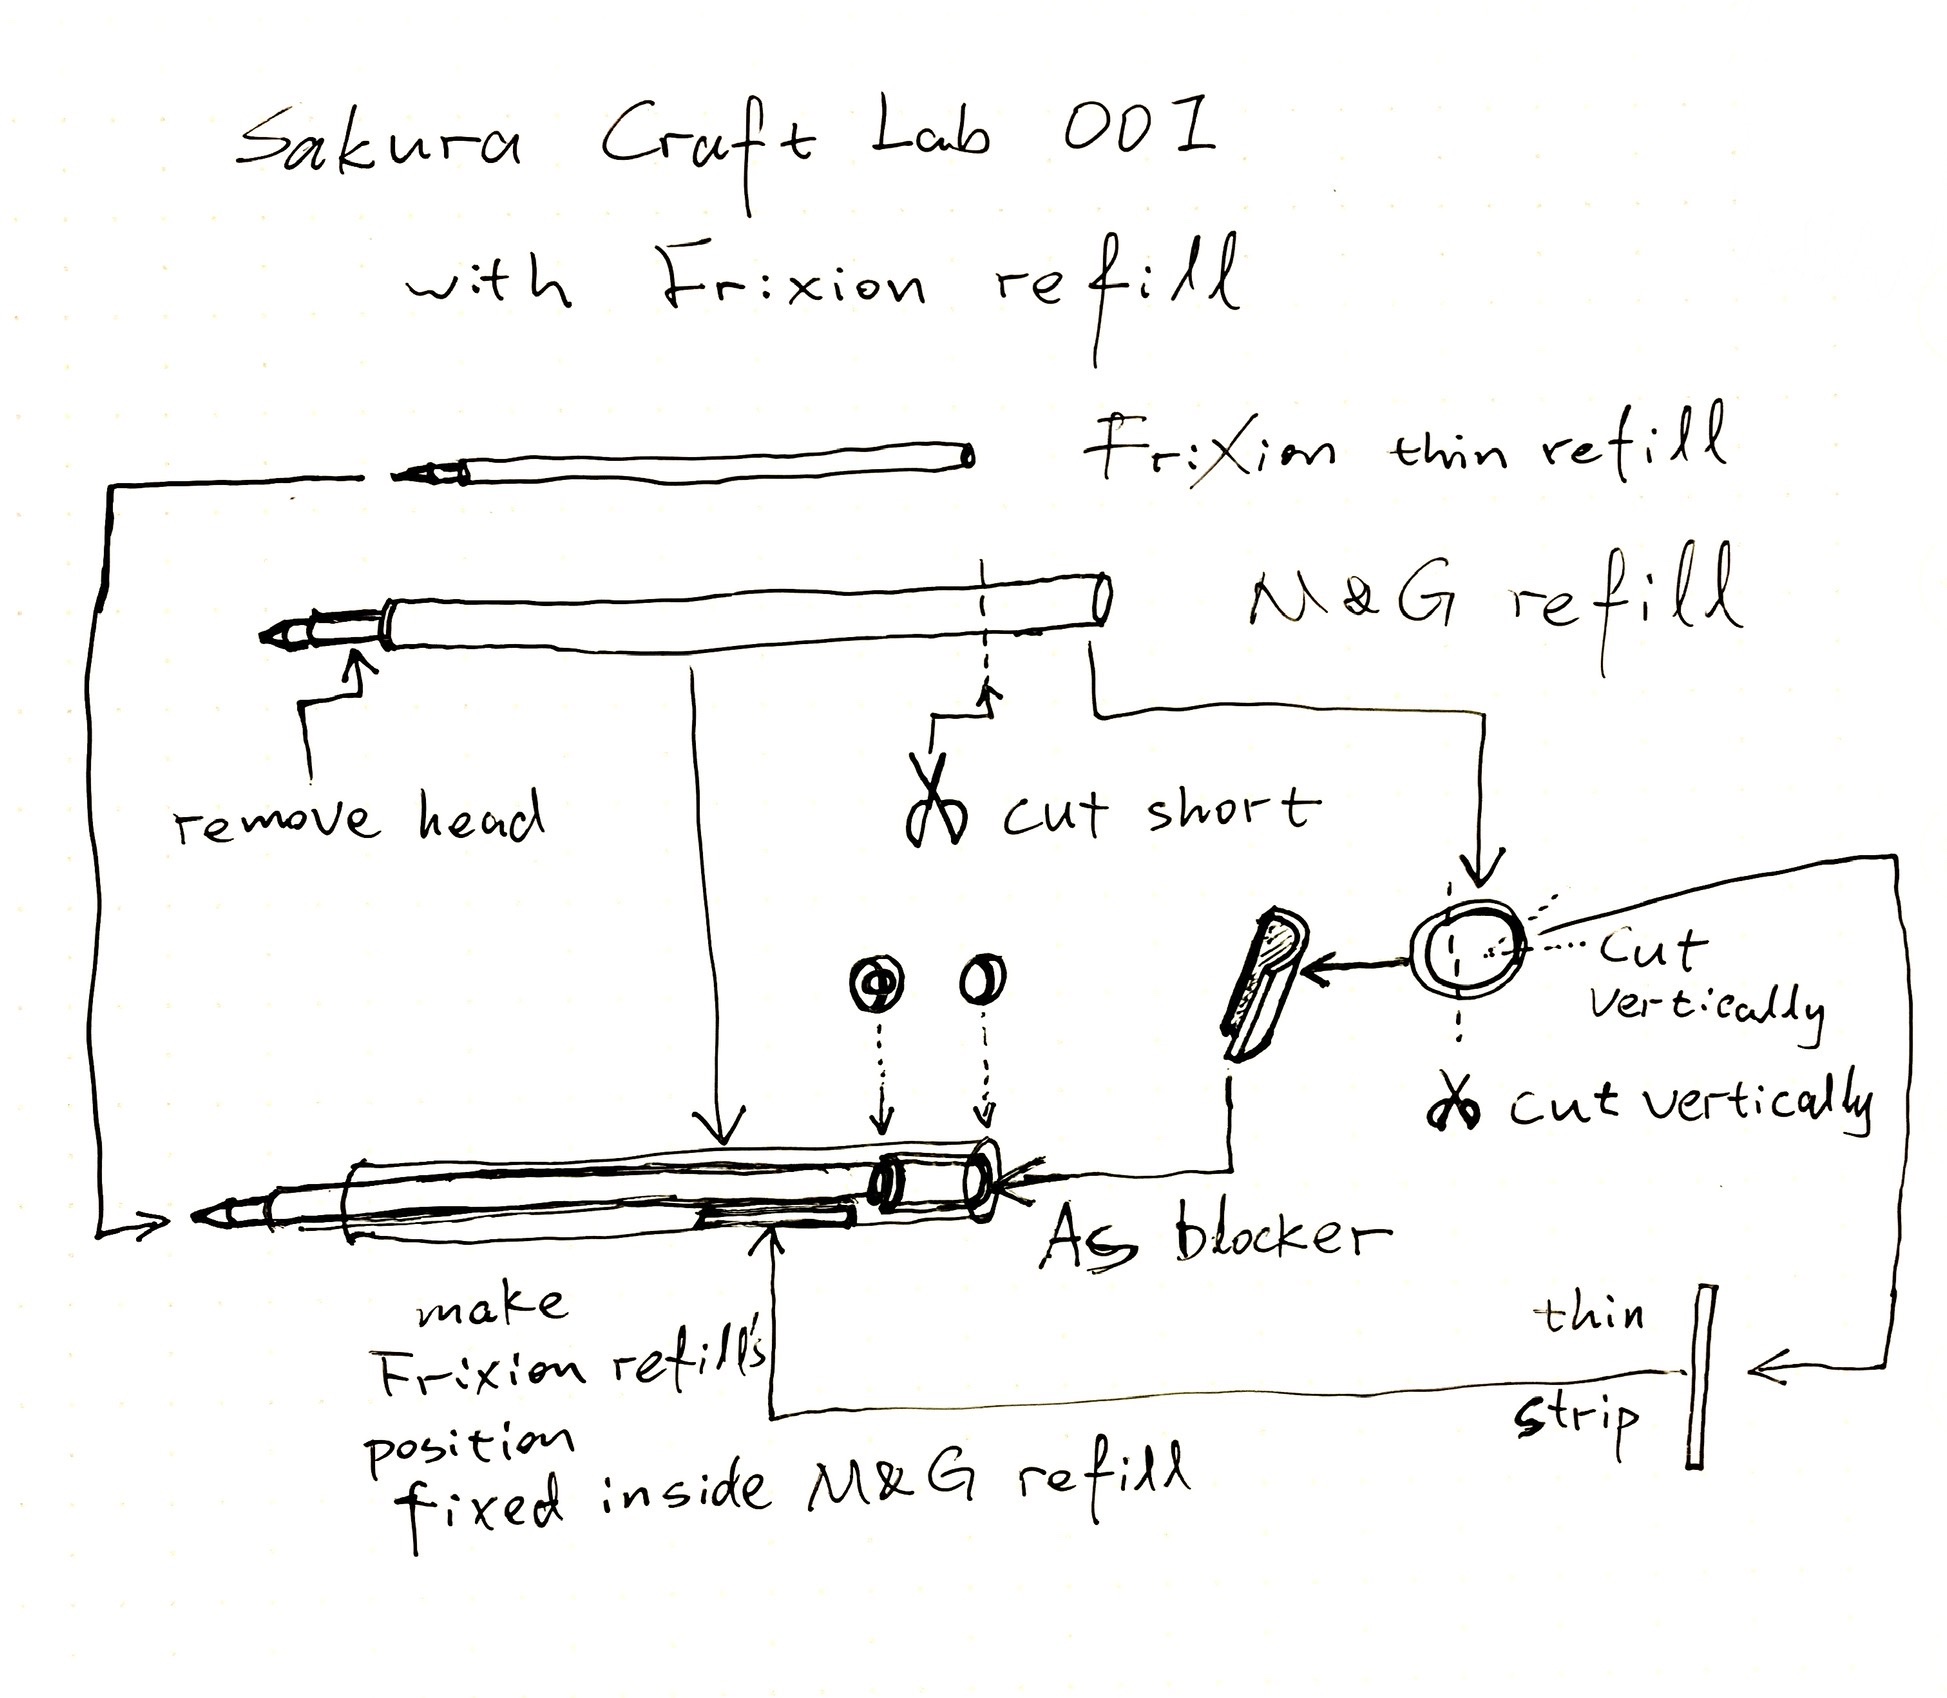 Sakura Craft Lab 001
with Frixion refill
FriXion thin refill
M&G refill
remove head
cut short
cut
vertically
cut vertically
As blocker
make
Frixion refill's
position
fixed inside M&G refill
thin
strip